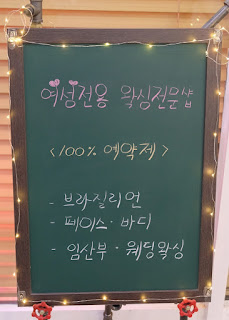 여성전용 왁싱전문샵
<100% 예약제>
- 브라질리언
- 페이스·바디
- 임산부·웨딩왁싱